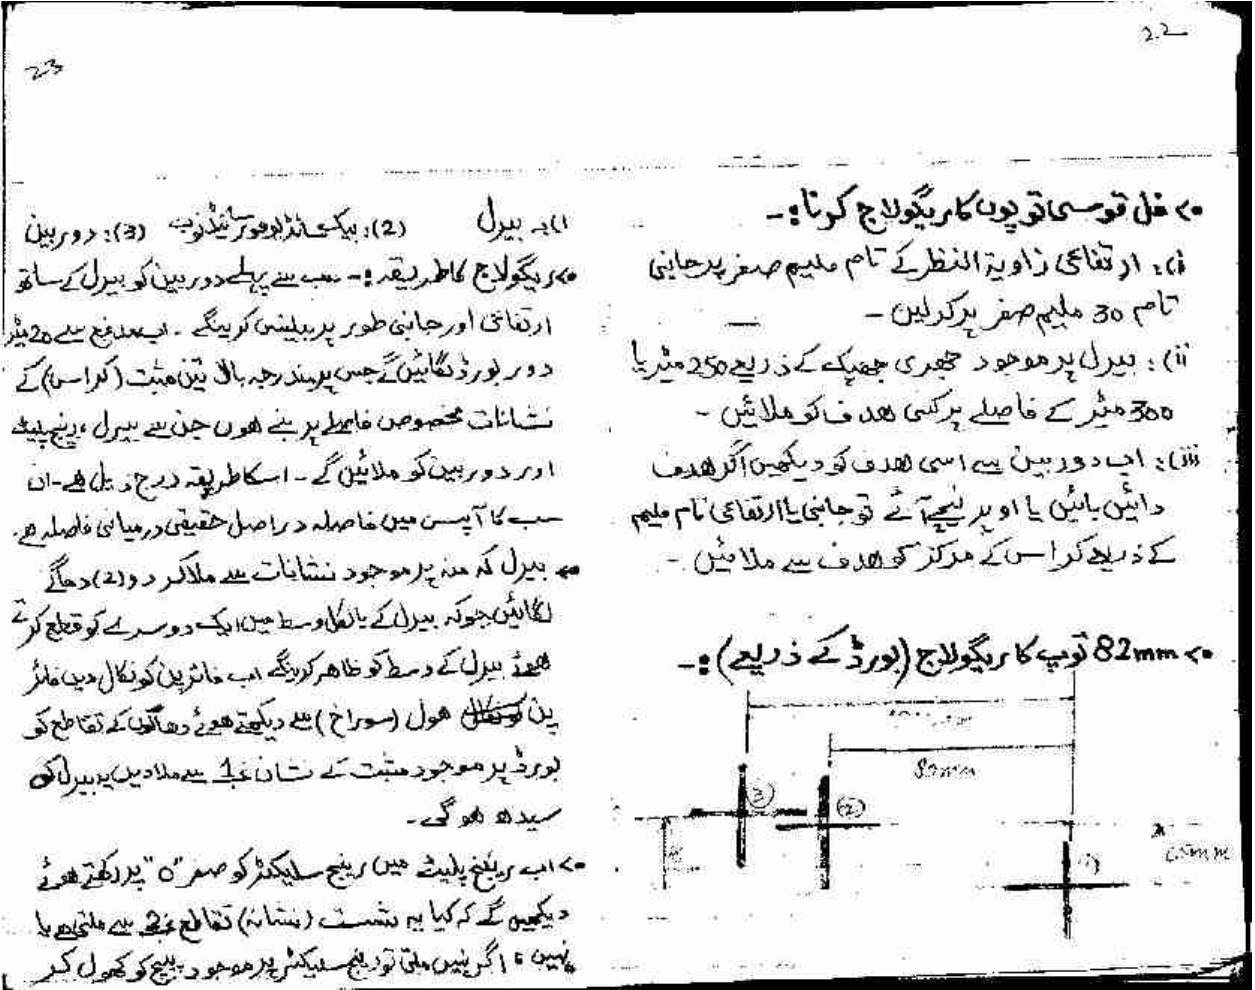 22
غل قوسی توپوں کا ریگولاج کرنا :-
(i): ارتفاعی زاویۃ النظر کے تام ملیم صفر پر جانبی
تام 30 ملیم صفر پر کرلیں -
(ii): بیرل پر موجود جھری کے ذریعے 250 میٹر یا
300 میٹر کے فاصلے پر کسی ھدف کو ملائیں -
(iii): اب دوربین سے اسی ھدف کو دیکھیں اگر ھدف
دائیں بائیں یا اوپر نیچے آئے تو جانبی یا ارتفاعی تام ملیم
کے ذریعے کراس کے مرکز کو ھدف سے ملائیں -
82mm توپ کا ریگولاج (بورڈ کے ذریعے) :-
82mm
3
2
23
1): بیرل (2): (3): دوربین
ریگولاج کا طریقہ :- سب سے پہلے دوربین کو بیرل کے ساتھ
ارتفاعی اور جانبی طور پر کرینگے - اب مدفع سے 20 میٹر
دور بورڈ لگائیں گے جس پر مندرجہ بالا تین مثبت (کراس) کے
نشانات مخصوص فاصلے پر بنے ھوں جن سے بیرل ، رینج پلیٹ
اور دوربین کو ملائیں گے - اسکا طریقہ درج ذیل ھے - ان
سب کا آپس میں فاصلہ دراصل حقیقی درمیانی فاصلہ ھے -
بیرل کہ منہ پر موجود نشانات سے ملا کر دو (2) دھاگے
لگائیں جوکہ بیرل کے بالکل وسط میں ایک دوسرے کو قطع کرتے
ھوئے بیرل کے وسط کو ظاھر کرینگے اب فائر پن کو نکال دیں فائر
پن ھول (سوراخ) سے دیکھتے ھوئے دھاگوں کے تقاطع کو
بورڈ پر موجود مثبت کے نشان 1 سے ملا دیں یہ بیرل کی
سیدھ ھو گی -
اب رینج پلیٹ میں رینج سلیکٹر کو صفر "0" پر رکھتے ھوئے
دیکھیں گے کہ کیا یہ شست (نشانہ) تقاطع 2 سے ملتی ھے یا
نہیں ، اگر نہیں ملتی تو رینج سلیکٹر پر موجود پیچ کو کھول کر